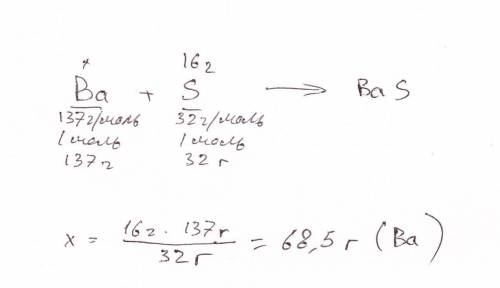 x 16г
Ba + S → BaS
137г/моль 32г/моль
1 моль 1 моль
137г 32 г
x = 16г · 137г / 32г = 68,5 г (Ba)